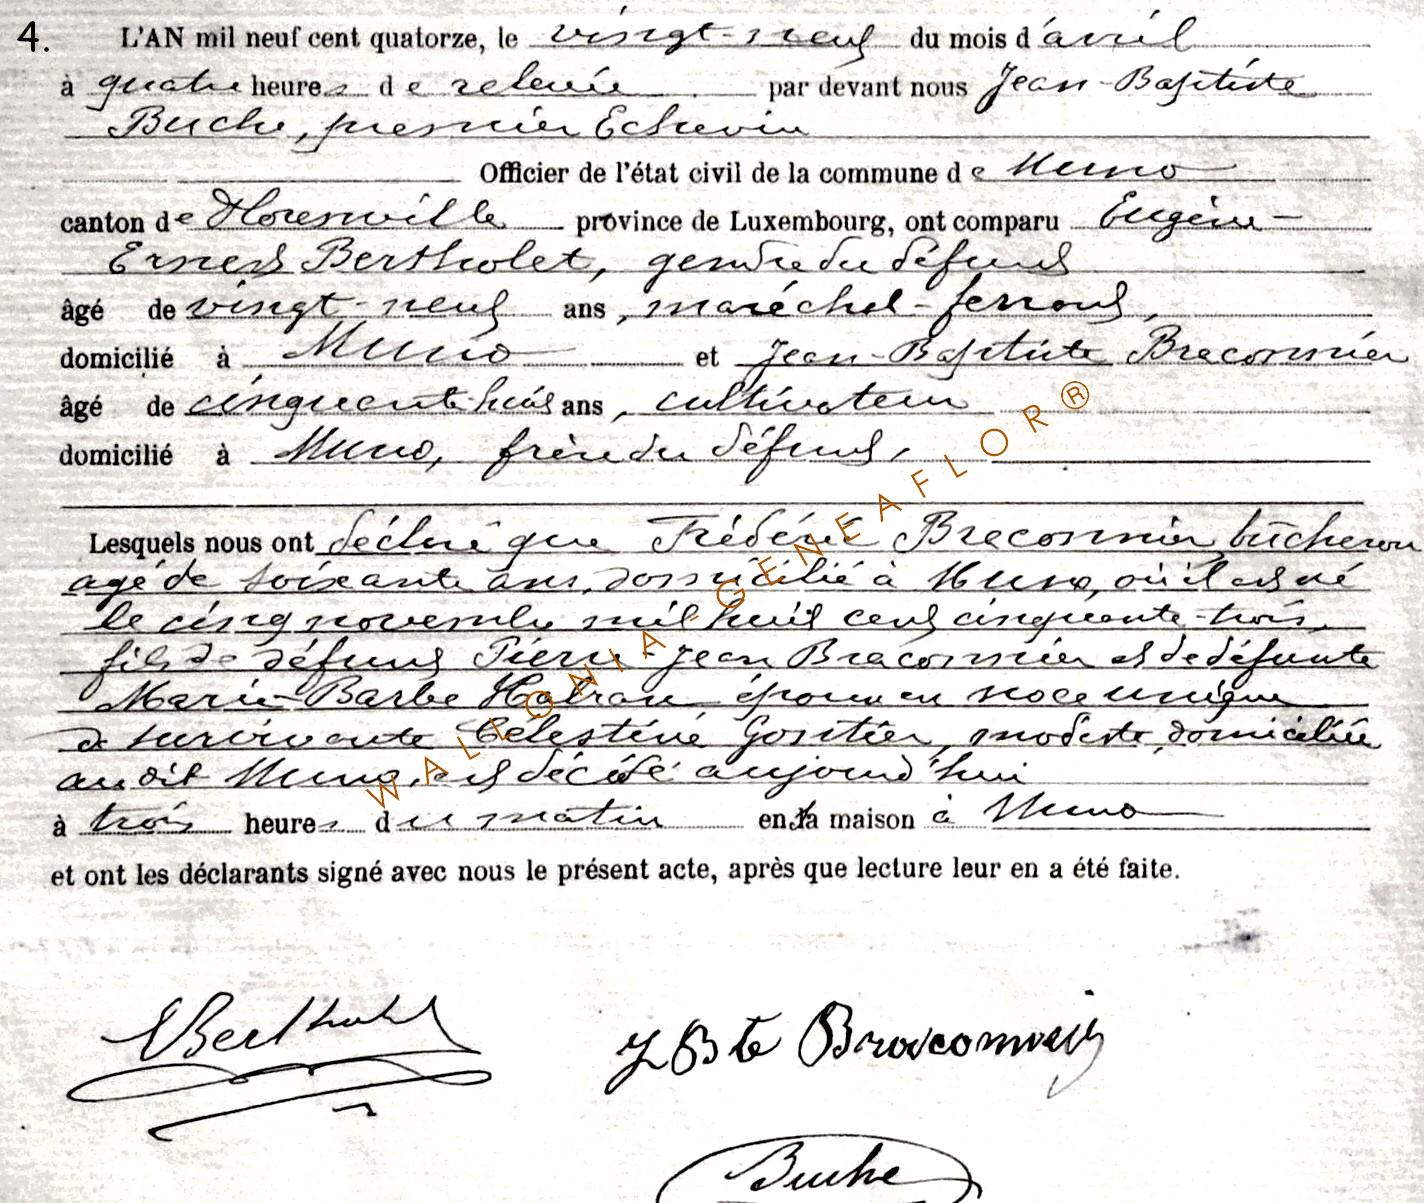 4. L'AN mil neuf cent quatorze, le vingt-neuf du mois d'avril
à quatre heures de relevée par devant nous Jean-Baptiste
Buche, premier Echevin
Officier de l'état civil de la commune de Muno
canton de Florenville province de Luxembourg, ont comparu Eugène-
Ernest Bertholet, gendre du défunt
âgé de vingt-neuf ans, maréchal-ferrant,
domicilié à Muno et Jean-Baptiste Braconnier
âgé de cinquante-huit ans, cultivateur
domicilié à Muno, frère du défunt,
Lesquels nous ont déclaré que Frédéric Braconnier, bûcheron
agé de soixante ans, domicilié à Muno, où il est né
le cinq novembre mil huit cent cinquante-trois,
fils de défunt Pierre-Jean Braconnier et de défunte
Marie-Barbe époux en noce unique
de survivante Célestine modiste, domiciliée
au dit Muno, est décédé aujourd'hui
à trois heures du matin en sa maison à Muno
et ont les déclarants signé avec nous le présent acte, après que lecture leur en a été faite.
EBertholet JBte Braconnier
Buche
WALLONIA - GENEAFLOR®